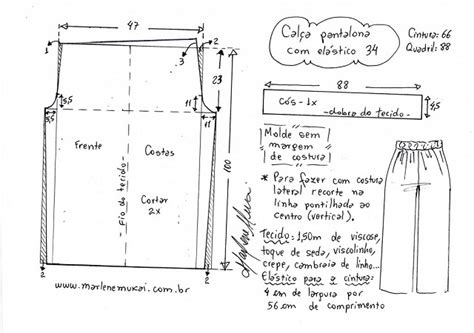 Calça pantalona
com elástico 34
Cintura: 66
Quadril: 88
47
1
2
3
2
23
5,5
11
5,5
11
Frente
Costas
Fio do tecido
Cortar
2x
100
2
2
88
Cós - 1x
dobra do tecido
4,5
Molde sem
margem
de costura
* Para fazer com costura
lateral recorte na
linha pontilhada ao
centro (vertical).
Tecido: 1,50m de viscose,
toque de seda, viscolinho,
crepe, cambraia de linho...
Elástico para a cintura:
4 cm de largura por
56 cm de comprimento
Marlene Mukai
www.marlenemukai.com.br